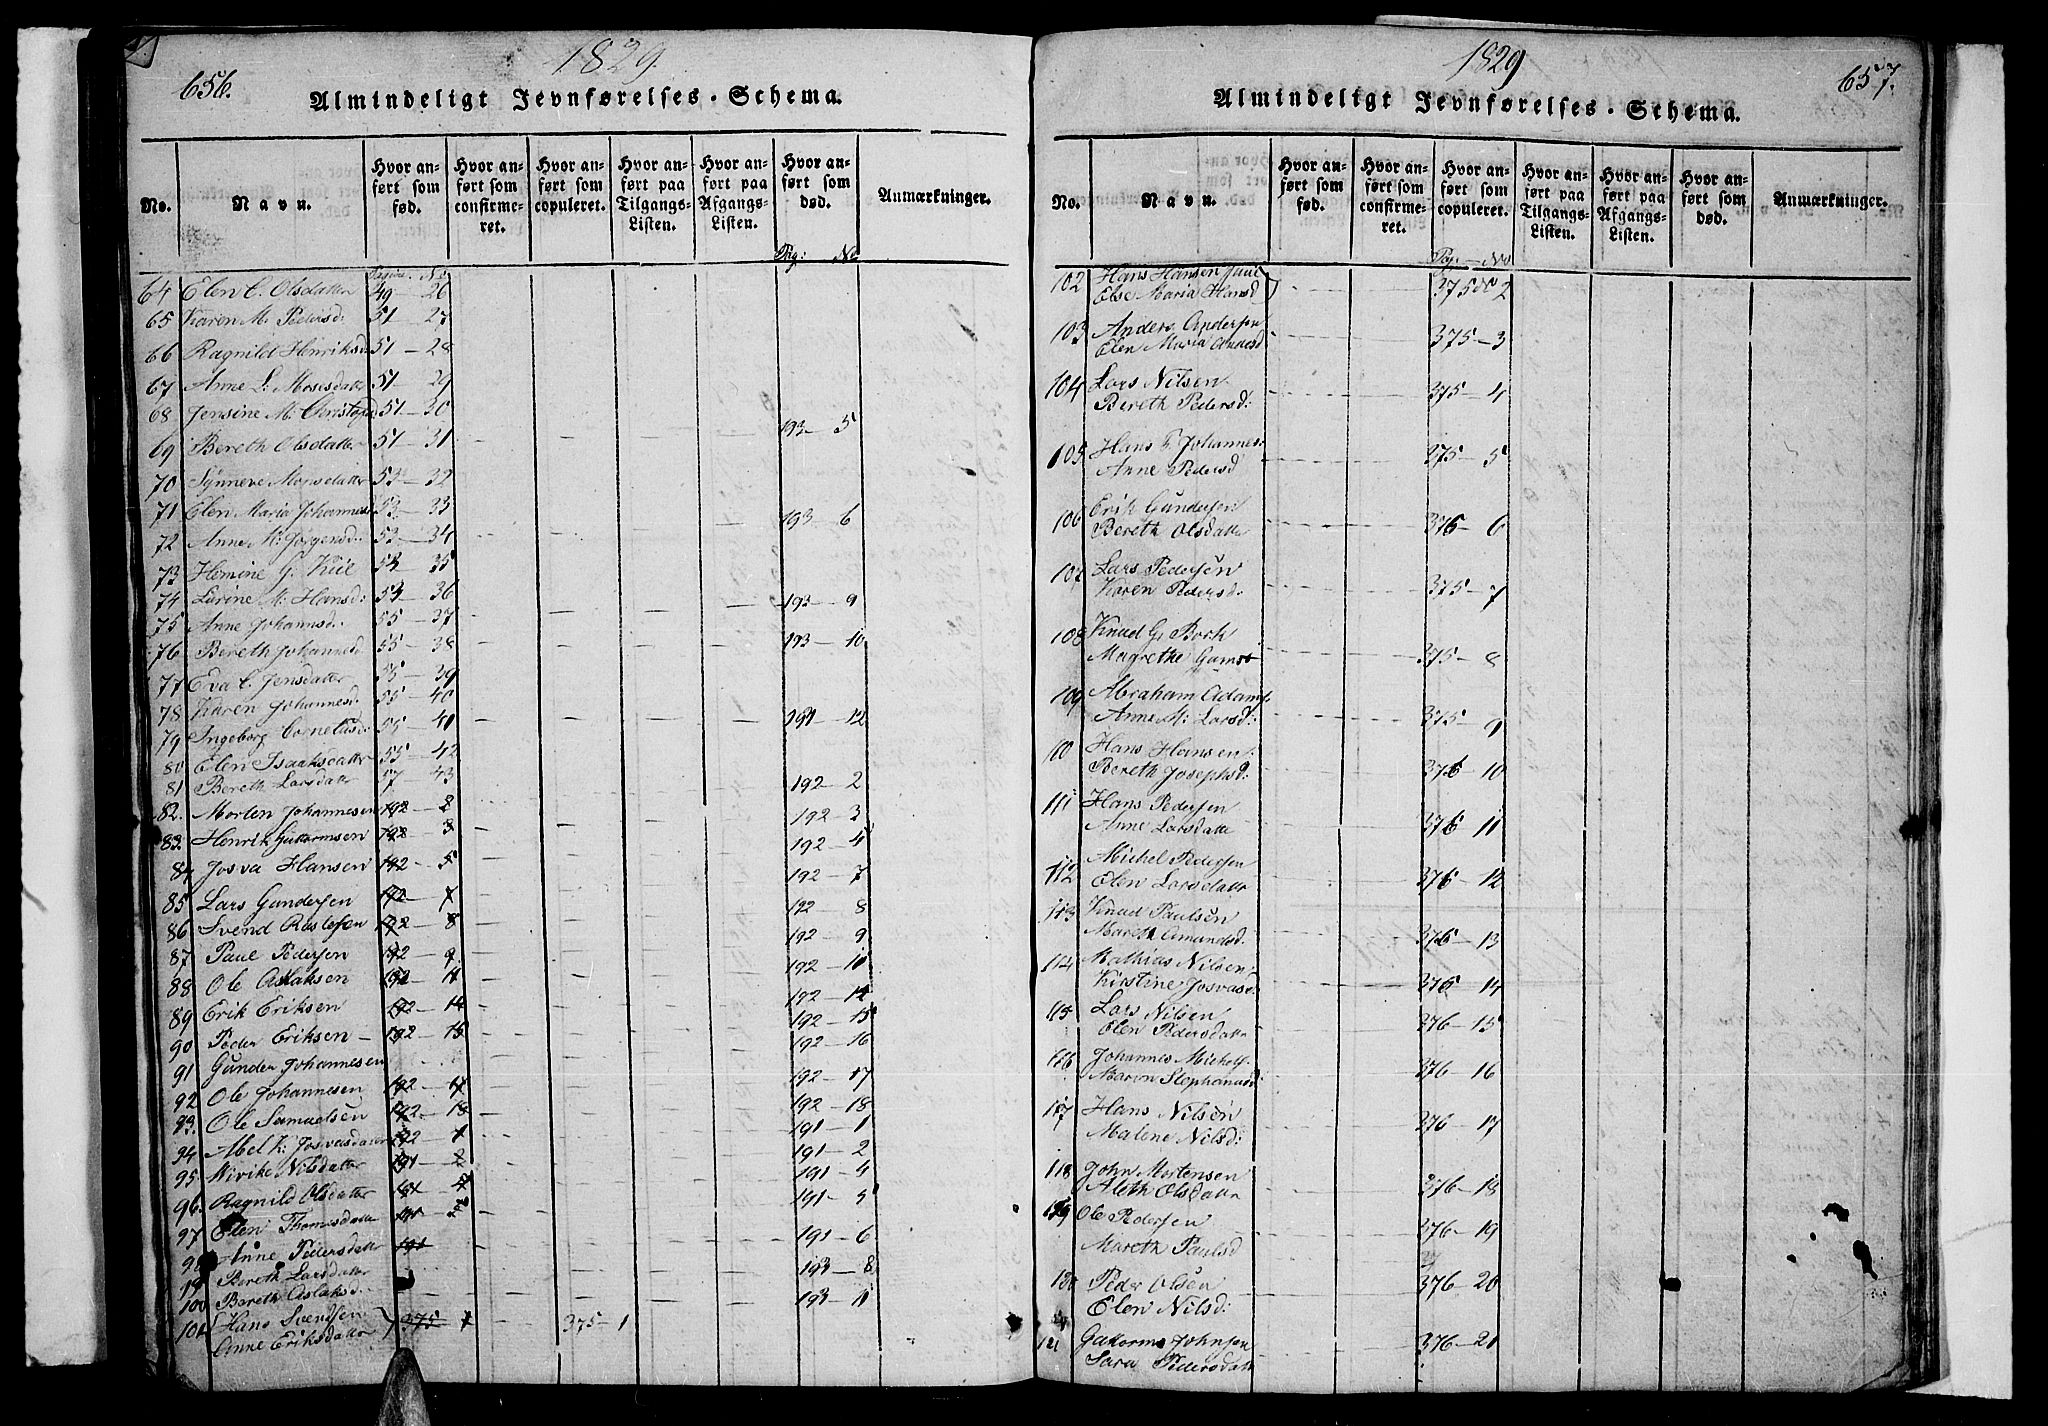 656.
1829.
Almindeligt Jevnførelses-Schema.
No.
Navn.
Hvor anført som fød.
Hvor anført som confirmeret.
Hvor anført som copuleret.
Hvor anført paa Tilgangs-Listen.
Hvor anført paa Afgangs-Listen.
Hvor anført som død.
Anmærkninger.
Pag: No
Pagina. No
64 Elen C. Olsdatter 49 — 26
65 Karen M. Pedersd: 51 — 27
66 Ragnild Henriksd: 51 — 28
67 Anne L: Mosesdatter 51 — 29
68 Jensine M. Christophd 51 — 30
69 Bereth Olsdatter 51 — 31 193 — 5
70 Synneve Monsdatter 53 — 32
71 Elen Maria Johannesd 53 — 33
72 Anne M: Jørgensd: 53 — 34 193 — 6
73 Hemine G. Kiil 53 — 35
74 Larine M: Hansd: 53 — 36
75 Anne Johannsd: 55 — 37 193 — 9
76 Bereth Johannesd 55 — 38 193 — 10
77 Eva C. Jensdatter 55 — 39
78 Karen Johannesd. 55 — 40
79 Ingeborg Corneliusd: 55 — 41 191 — 12
80 Elen Isaaksdatter 55 — 42
81 Bereth Larsdatter 57 — 43 192 — 2
82. Morten Johannesen 192 — 2 192 — 3
83. Henrik Guttormsen 192 — 3 192 — 4
84 Josva Hansen 192 — 5 192 — 7
85 Lars Gundersen 192 — 7 192 — 8
86 Svend 192 — 8 192 — 9
87 Paul Pedersen 192 — 9 192 — 11
88 Ole Aslaksen 192 — 11 192 — 14
89 Erik Eriksen 192 — 14 192 — 15
90 Peder Eriksen 192 — 15 192 — 16
91 Gunder Johannesen 192 — 17
92 Ole Johannesen 192 — 17 192 — 18
93. Ole Samuelsen 192 — 18 191 — 1
94 Abel K: Josvasdatter 192 — 1 191 — 2
95. Wivike Nilsdatter 191 — 2 191 — 4
96. Ragnild Olsdatter 191 — 4 191 — 5
97 Elen Thomasdatter 191 191 — 6
98 Anne Pedersdatter 191 193 — 8
Bereth Larsdatter
100 Bereth Aslaksd: 193 — 11
101 Hans Svendsen 375 1 375 — 1
Anne Eriksdatter
1829
657.
Almindeligt Jevnførelses-Schema.
No.
Navn.
Hvor anført som fød.
Hvor anført som confirmeret.
Hvor anført som copuleret.
Hvor anført paa Tilgangs-Listen.
Hvor anført paa Afgangs-Listen.
Hvor anført som død.
Anmærkninger.
Pag. — No
102 Hans Hansen Juul
Else Maria Hansd 375 2
103 Anders Andersen
Elen Maria 375 — 3
104 Lars Nilsen
Bereth Pedersd: 375 — 4
105 Hans T. Johannes:
Anne Pedersd 375 — 5
106 Erik Gundersen
Bereth Olsdatter 375 — 6
107 Lars Pedersen
Karen Pedersd: 375 — 7
108 Knud G. Bork
Magrethe Gamst 375 — 8
109 Abraham Adams
Anne M: Larsd: 375 — 9
110 Hans Hansen
Bereth Josephsd: 376 — 10
111 Hans Pedersen
Anne Larsdatter 376 11
112 Michel Pedersen
Elen Larsdatter 376 — 12
113 Knud Paulsen
Mareth Amundsd. 376 — 13
114 Mathias Nilsen
Kirstine Josvasd: 376 — 14
115 Lars Nilsen
Elen Pedersdatter 376 — 15
116 Johannes Michels
Maren Stephanusd: 376 — 16
117 Hans Nilsen
Malene Nilsd: 376 — 17
118 John Mortensen
Aleth Olsdatter 376 — 18
119 Ole Pedersen
Mareth Paulsd 376 — 19
120 Peder Olsen
Elen Nilsd: 376 — 20
121 Guttorm Johnsen
Sara Pedersdatter 376 — 21